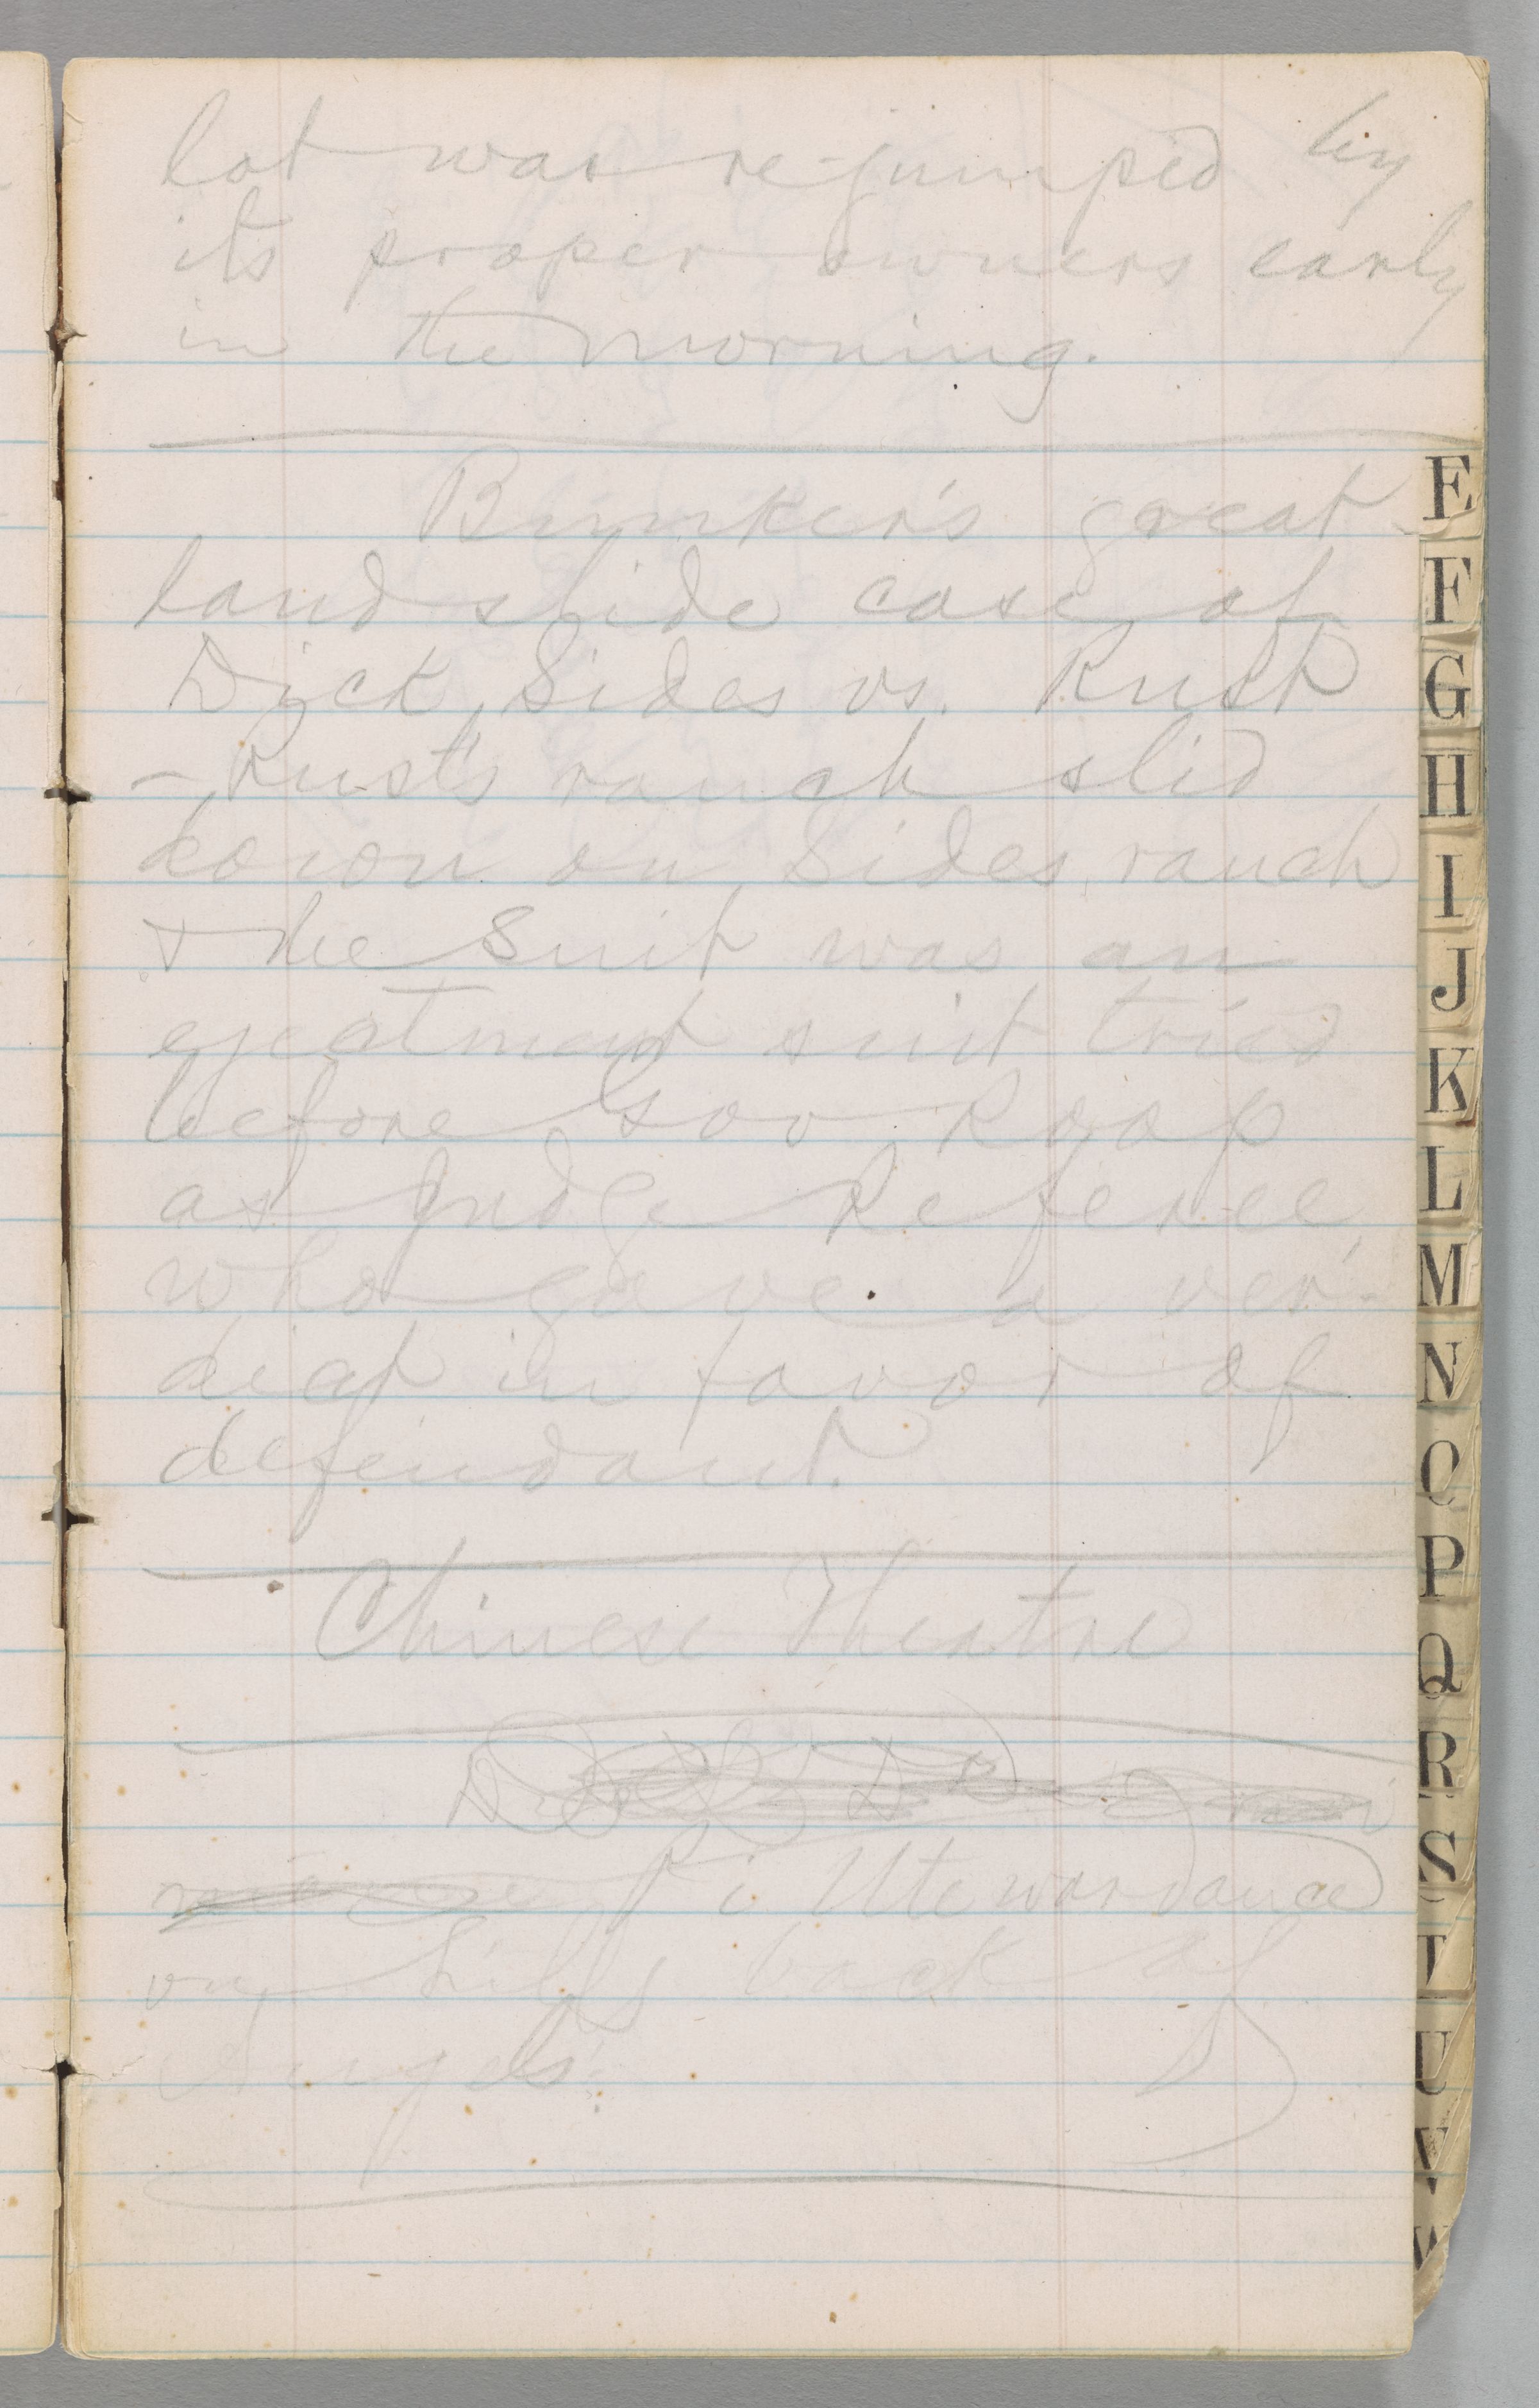 lot was re-jumped by
its proper owners early
in the morning.
Bunker's great
land slide case of
Dick Sides vs. Rust
– Rust's ranch slid
down on Sides' ranch
& the suit was an
ejectment suit tried
before Gov Roop
as Judge Referee
who gave a ver-
dict in favor of
defendant.
Chinese Theatre
Pi Ute war dance
on hills back of
Angels.
E
F
G
H
I
J
K
L
M
N
O
P
Q
R
S
T
U
V
W